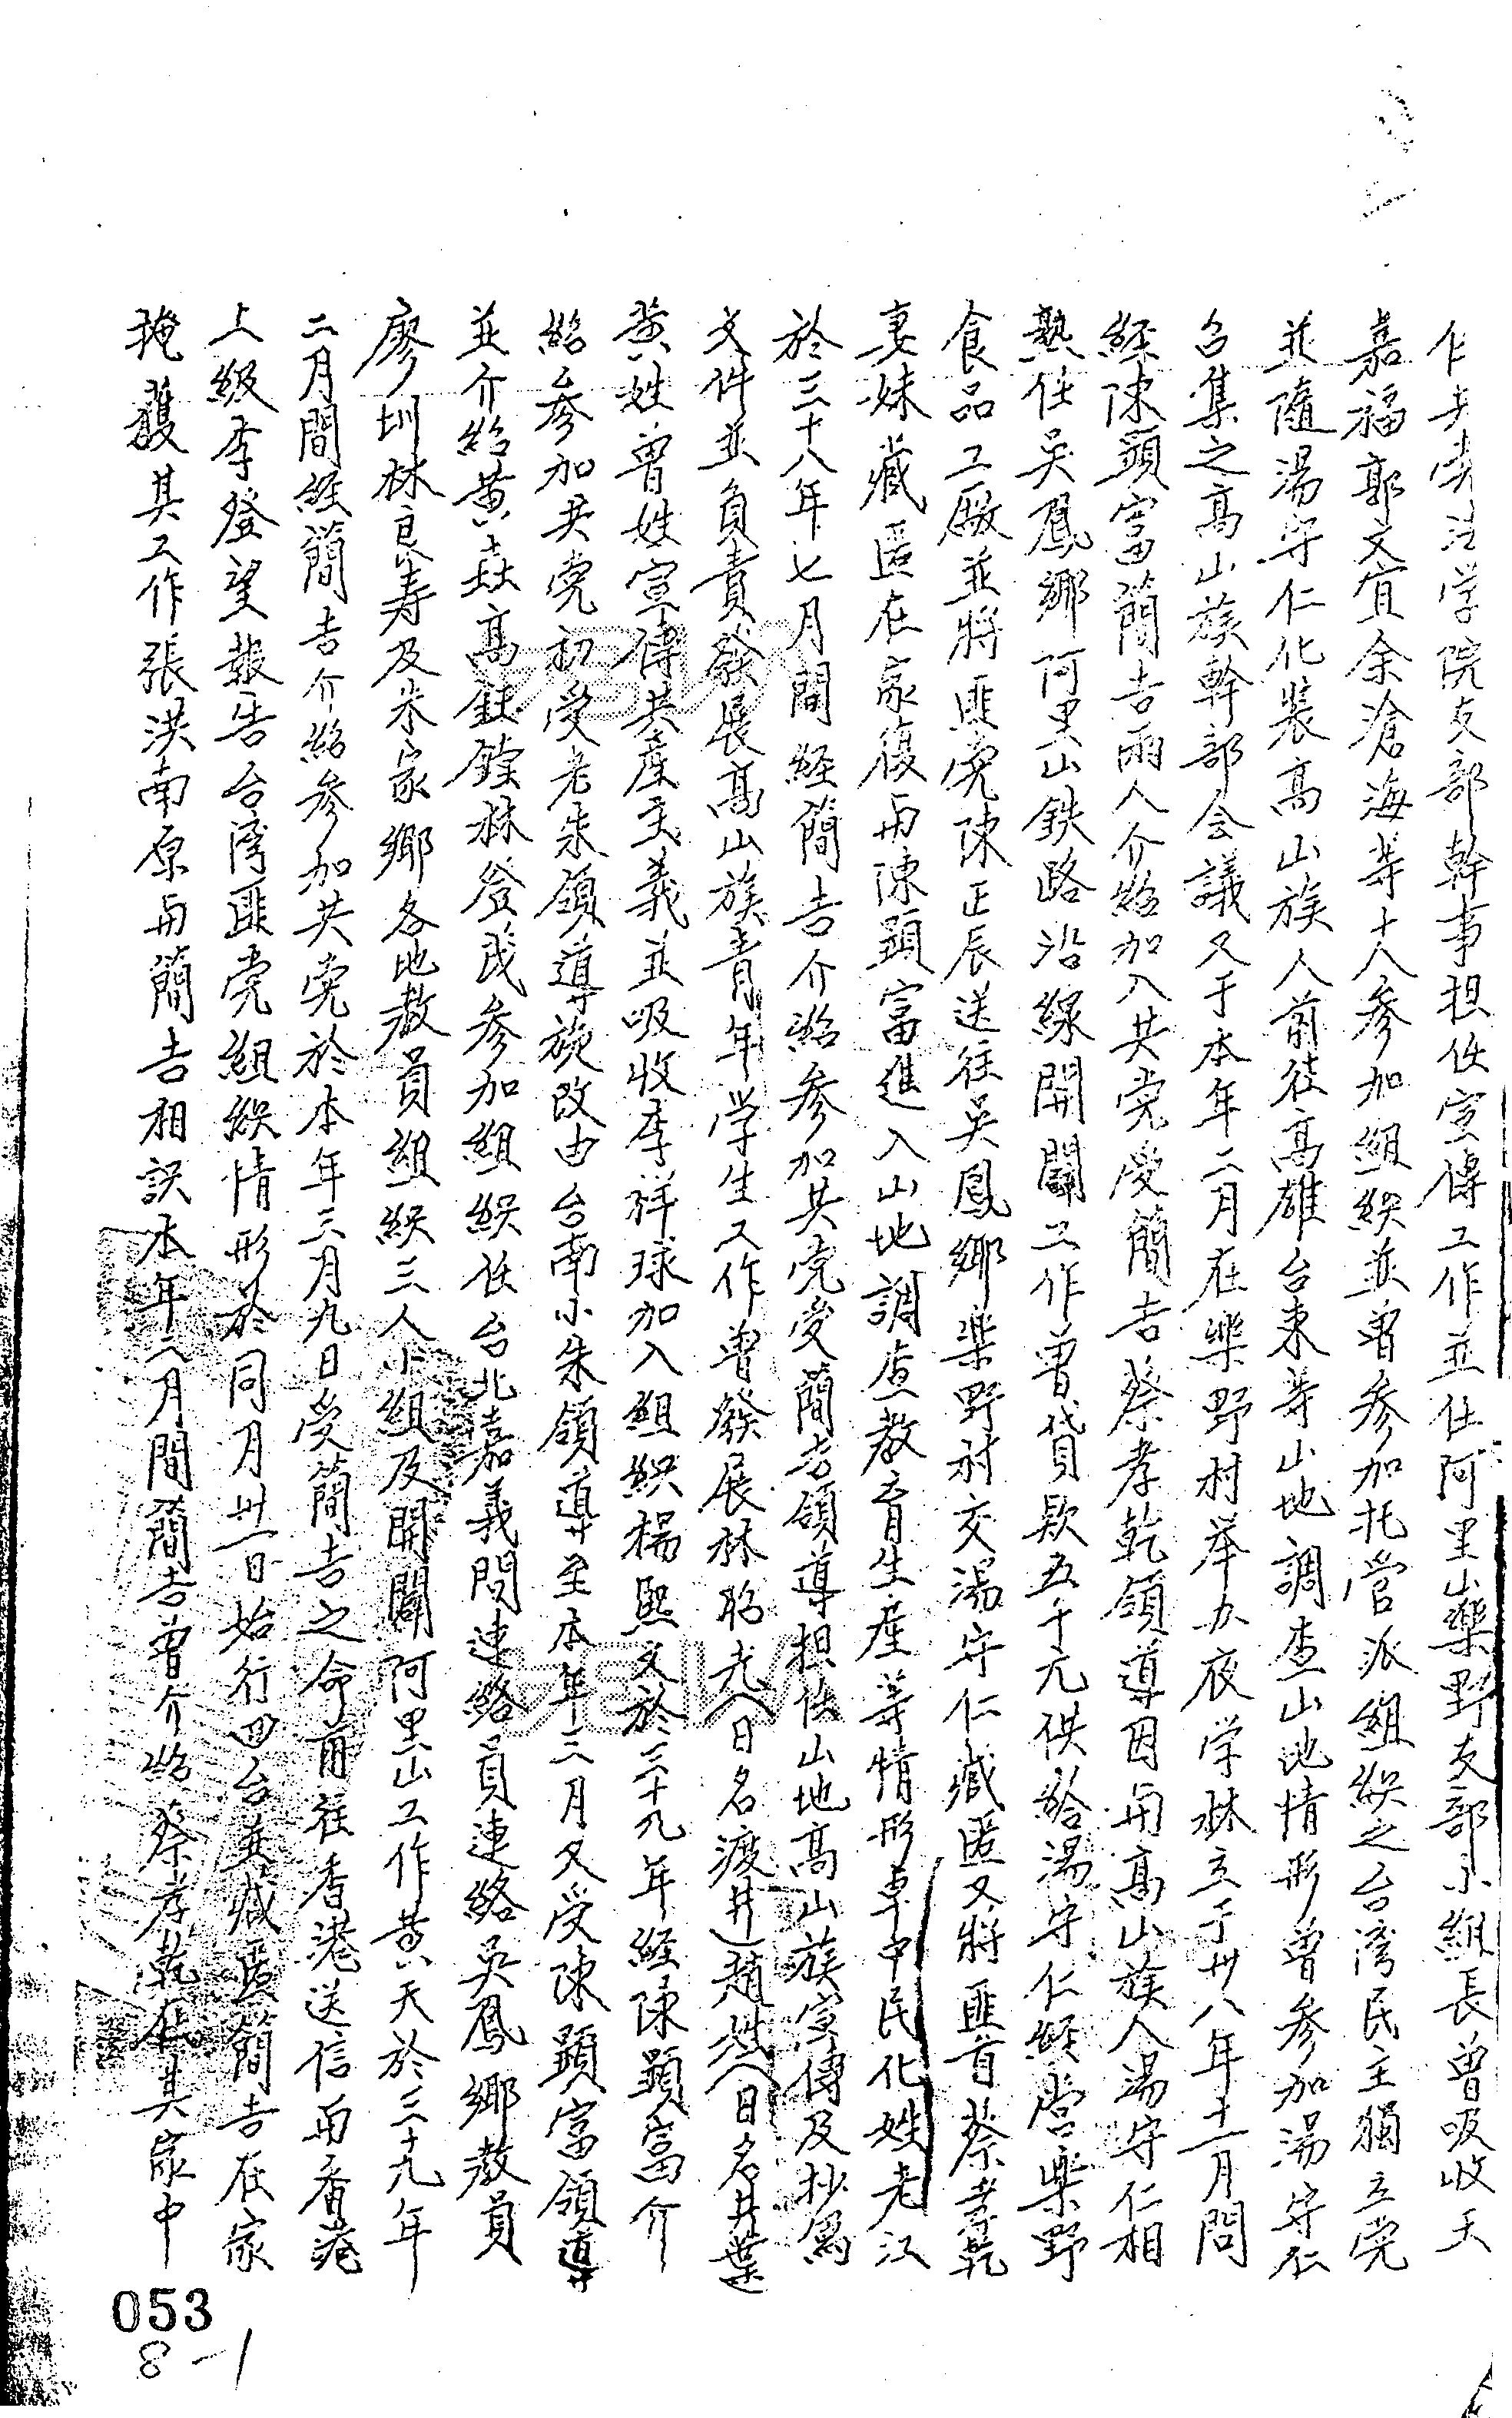 作共党法学院支部幹事担任宣傳工作並任阿里山樂野支部小組長曾吸收天
嘉福郭文宜余滄海等十人參加組織並曾參加托管派組織之台湾民主獨立党
並隨湯守仁化裝高山族人前往高雄台東等山地調查山地情形曾參加湯守仁
召集之高山族幹部会議又于本年二月在樂野村举办夜学林立于卅八年十一月間
経陳顕富簡吉兩人介紹加入共党受簡吉蔡孝乾領導因与高山族人湯守仁相
熟任吳鳳鄉阿里山鉄路沿線開闢工作曾貸款五千元供給湯守仁経営樂野
食品工廠並將匪党陳正辰送往吳鳳鄉樂野村交湯守仁藏匿又將匪首蔡孝乾
妻妹藏匿在家復与陳顕富進入山地調查教育生產等情形卓中民化姓老江
於三十八年七月間経簡吉介紹參加共党受簡吉領導担任山地高山族宣傳及抄寫
文件並負責發展高山族青年学生工作曾發展林昭光(日名渡井)趙姓(日名井葉)
黄姓曾姓宣傳共產主義並吸收李祥球加入組織楊熙文於三十九年経陳顕富介
紹參加共党初受老朱領導旋改由台南小朱領導至本年三月又受陳顕富領導
並介紹黄垚高鉎鏜林登茂參加組織任台北嘉義間連絡員連絡吳鳳鄉教員
廖圳林良寿及朱家鄉各地教員組織三人小組及開闢阿里山工作黄天於三十九年
二月間経簡吉介紹參加共党於本年三月九日受簡吉之命前往香港送信与香港
上級李登望報告台湾匪党組織情形於同月卅一日始行回台並藏匿簡吉在家
掩護其工作張洪南原与簡吉相識本年二月間簡吉曾介紹蔡孝乾在其家中
053
8-1